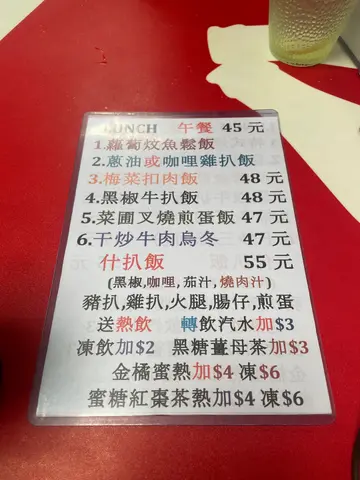 LUNCH 午餐 45 元
1.蘿蔔炆魚鬆飯
2.蔥油或咖哩雞扒飯
3.梅菜扣肉飯 48 元
4.黑椒牛扒飯 48 元
5.菜圃叉燒煎蛋飯 47 元
6.干炒牛肉烏冬 47 元
什扒飯 55 元
(黑椒,咖哩,茄汁,燒肉汁)
豬扒,雞扒,火腿,腸仔,煎蛋
送熱飲 轉飲汽水加$3
凍飲加$2 黑糖薑母茶加$3
金橘蜜熱加$4 凍$6
蜜糖紅棗茶熱加$4 凍$6